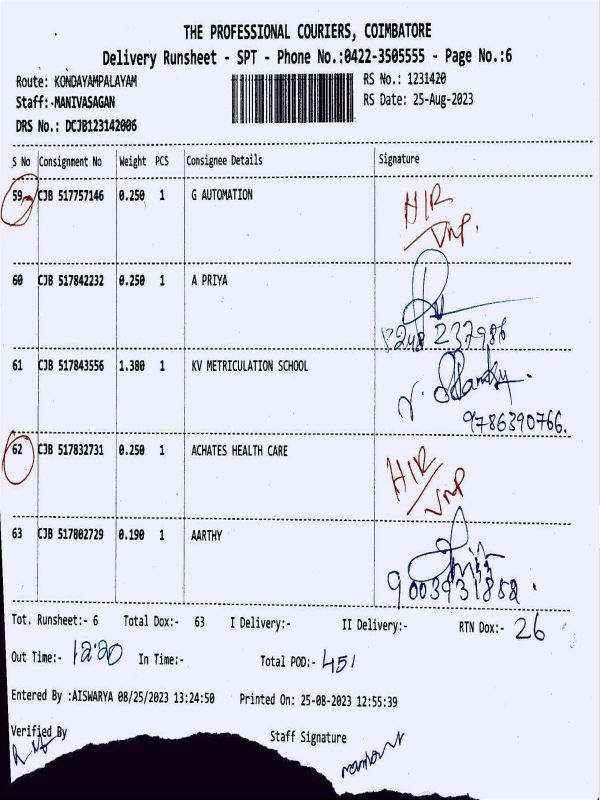 THE PROFESSIONAL COURIERS, COIMBATORE
Delivery Runsheet - SPT - Phone No.:0422-3505555 - Page No.:6
Route: KONDAYAMPALAYAM RS No.: 1231420
Staff: MANIVASAGAN RS Date: 25-Aug-2023
DRS No.: DCJB123142006
S No Consignment No Weight PCS Consignee Details Signature
59 CJB 517757146 0.250 1 G AUTOMATION
60 CJB 517842232 0.250 1 A PRIYA
61 CJB 517843556 1.380 1 KV METRICULATION SCHOOL
9786390766.
62 CJB 517832731 0.250 1 ACHATES HEALTH CARE
63 CJB 517802729 0.190 1 AARTHY
Tot. Runsheet:- 6 Total Dox:- 63 I Delivery:- II Delivery:- RTN Dox:- 26
Out Time:- 12:20 In Time:- Total POD:- 45
Entered By :AISWARYA 08/25/2023 13:24:50 Printed On: 25-08-2023 12:55:39
Verified By Staff Signature